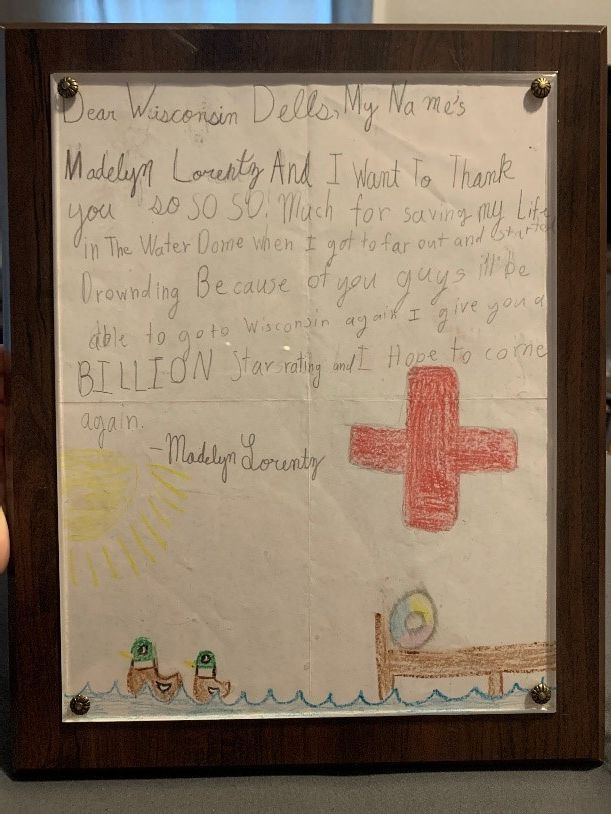 Dear Wisconsin Dells, My Name's
Madelyn Lorentz And I Want To Thank
you so SO SO! Much for saving my Life
in The Water Dome when I got to far out and started
Drownding Because of you guys i'll be
able to goto Wisconsin again I give you a
BILLION Star rating and I Hope to come
again.
-Madelyn Lorentz